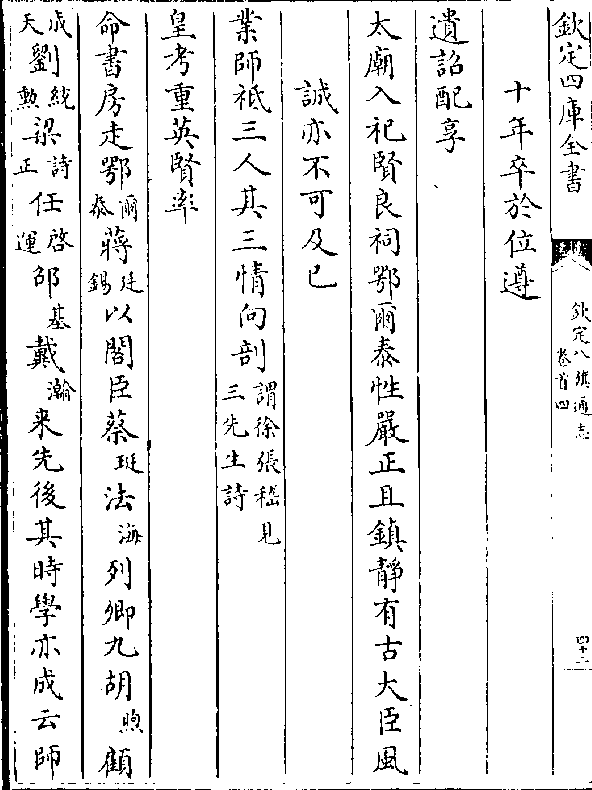 欽定四庫全書
欽定八旗通志
卷首四
四十二
十年卒於位遵
遺詔配享
太廟入祀賢良祠鄂爾泰性嚴正且鎮靜有古大臣風
誠亦不可及已
業師祇三人其三情向剖謂徐張嵇見三先生詩
皇考重英賢率
命書房走鄂爾泰蔣廷錫以閣臣蔡珽法海列卿九胡煦顧
成天劉統勲梁詩正任啓運邵基戴瀚来先後其時學亦成云師